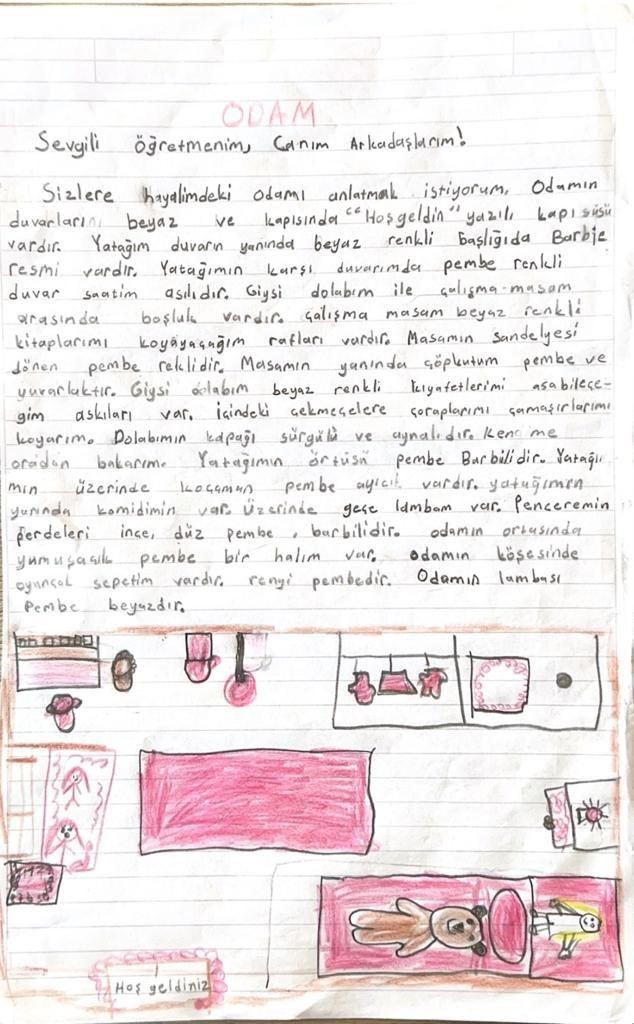 ODAM
Sevgili öğretmenim, Canım Arkadaşlarım!
Sizlere hayalimdeki odamı anlatmak istiyorum. Odamın
duvarlarını beyaz ve kapısında "Hoşgeldin" yazılı kapı süsü
vardır. Yatağım duvarın yanında beyaz renkli başlığıda Barbie
resmi vardır. Yatağımın karşı duvarımda pembe renkli
duvar saatim asılıdır. Giysi dolabım ile çalışma masam
arasında boşluk vardır. çalışma masam beyaz renkli
kitaplarımı koyayacağım rafları vardır. Masamın sandelyesi
dönen pembe reklidir. Masamın yanında çöpkutum pembe ve
yuvarlaktır. Giysi dolabım beyaz renkli kıyafetlerimi asabilece-
ğim askıları var. içindeki çekmecelere çoraplarımı çamaşırlarımı
koyarım. Dolabımın kapağı sürgülü ve aynalıdır. Kendime
oradan bakarım. Yatağımın örtüsü pembe Barbilidir. Yatağı-
mın üzerinde kocaman pembe ayıcık vardır. yatağımın
yanında komidimin var. Üzerinde geçe lambam var. Penceremin
perdeleri ince, düz pembe, barbilidir. odamın ortasında
yumuşacık pembe bir halım var. odamın köşesinde
oyuncak sepetim vardır. rengi pembedir. Odamın lambası
Pembe beyazdır.
Hoş geldiniz